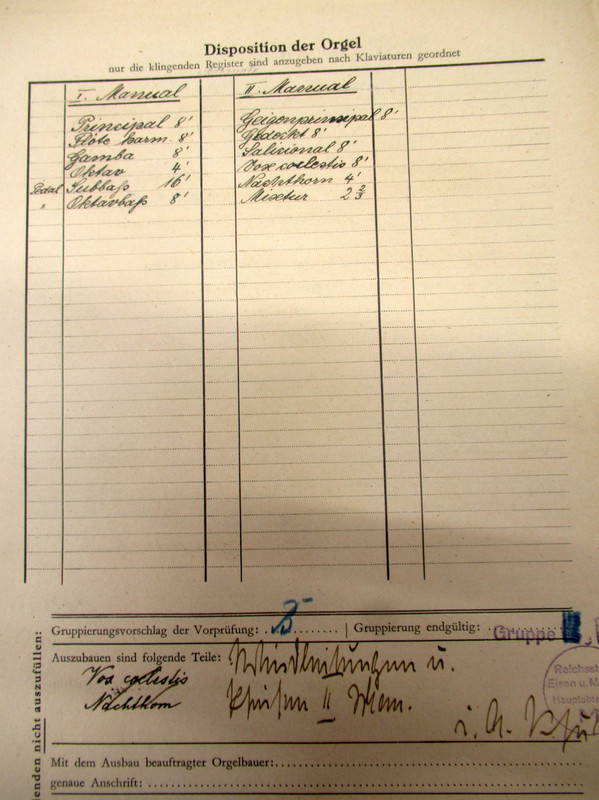 Disposition der Orgel
nur die klingenden Register sind anzugeben nach Klaviaturen geordnet
I. Manual
Principal 8'
Flöte harm. 8'
Gamba 8'
Oktav 4'
Pedal Subbaß 16'
" Oktavbaß 8'
II. Manual
Geigenprinzipal 8'
Gedeckt 8'
Salicional 8'
Vox coelestis 8'
Nachthorn 4'
Mixtur 2 2/3
Gruppierungsvorschlag der Vorprüfung: B
Gruppierung endgültig: Gruppe
Auszubauen sind folgende Teile: Windleitungen u.
Vox coelestis
Nachthorn
Pfeifen II
i. A.
Reichsst
Eisen u. M
Hauptable
Mit dem Ausbau beauftragter Orgelbauer:
genaue Anschrift:
enden nicht auszufüllen: